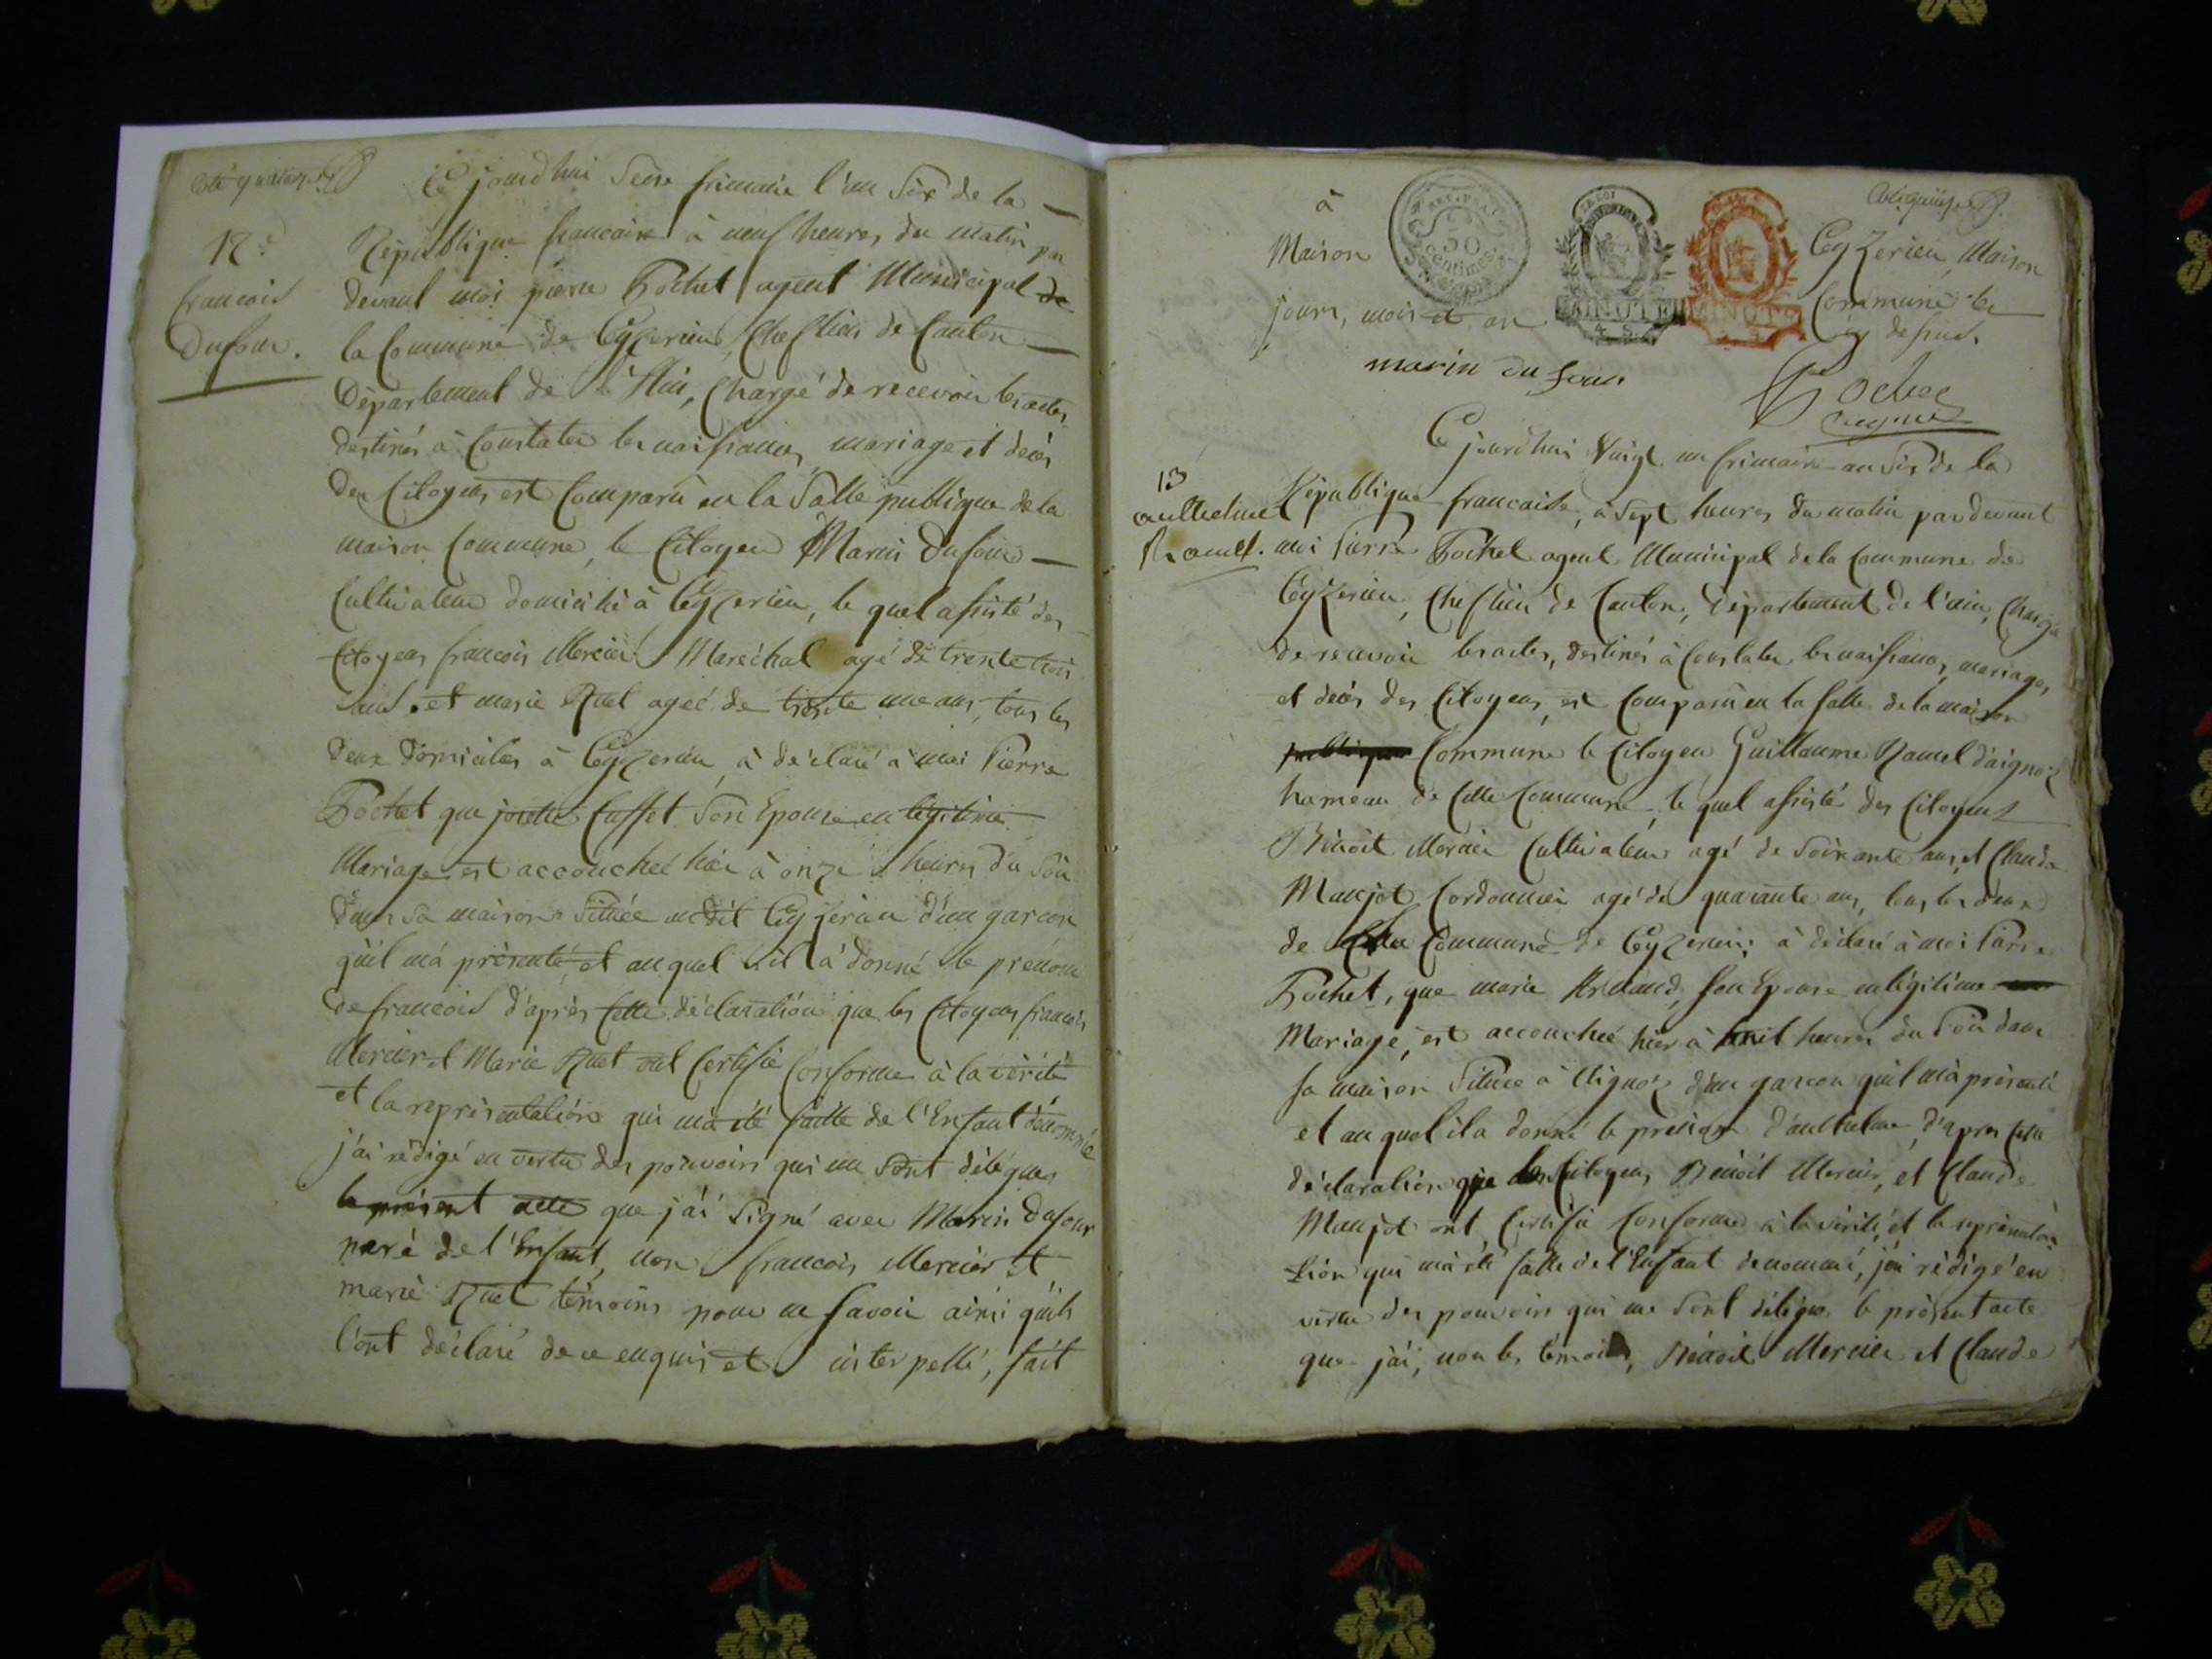 Coté quatorze
Ce jourd'hui Seize frimaire l'an Six de la
12e
République francaise à neuf heures du matin par
francois
devant moi pierre Pochet agent Municipal de
Dufour.
la Commune de Ceyzerieu, Chef lieu de Canton
Département de l'Ain, Chargé de recevoir les actes
destinés à Constater les naissances, mariage et décés
des Citoyens est Comparu en la Salle publique de la
maison Commune, le Citoyen Marin Dufour
Cultivateur domicilié à Ceyzerieu, le quel assisté des
Citoyens francois Mercier Maréchal agé de trente trois
ans, et marie agée de trente une ans, tous les
deux domiciliés à Ceyzerieu, à déclaré à moi Pierre
Pochet que josette Cusset Son Epouse en légitime
Mariage est accouchée hier à onze heures du Soir
dans sa maison Située audit Ceyzerieu d'un garcon
qu'il m'à présenté, et auquel il à donné le prénom
de francois d'après Cette déclaration que les Citoyens francois
Mercier et Marie ont Certifié Conforme à la vérité
et la représentation qui m'a été faitte de l'Enfant dénommé
j'ai rédigé en vertu des pouvoirs qui me Sont délégués
le présent acte que j'ai Signé avec Marin dufour
pere de l'Enfant, non francois Mercier et
marie témoins pour ne Savoir ainsi qu'ils
l'ont déclaré de ce enquis et interpellé, fait
à Ceyzerieu, Maison
Maison Commune les
jours, mois et an cy dessus
50
Centimes
MINUTE
marin du four
Pochet
Ce jourd'hui Vuigt un frimaire an Six de la
13
anthelme République francaise, à Sept heures du matin par devant
moi Pierre Pochet agent Municipal de la Commune de
Ceyzerieu, Chef lieu de Canton, Département de l'ain, Chargé
de recevoir les actes, destinés à Constater les naissances, mariages,
et décés des Citoyens, est Comparu en la Salle de la maison
Commune le Citoyen Guillaume Ramel d'aignoz
hameau de Cette Commune, le quel assisté des Citoyens
Bénoit Mercier Cultivateur agé de Soixante ans, et Claude
Maujot Cordonnier agé de quarante ans, tous les deux
de Commune de Ceyzerieu; à déclaré à moi Pierre
Pochet, que marie Son Epouse en légitime
Mariage, est accouchée hier à huit heures du Soir dans
Sa maison Située à Aignoz d'un garcon qu'il m'à présenté
et auquel il a donné le prénom d'anthelme, d'apres Cette
déclaration que les Citoyens Bénoit Mercier, et Claude
Maujot ont Certifié Conforme à la vérité, et la représenta-
tion qui m'a été faitte de l'Enfant denommé, j'ai rédigé en
vertu des pouvoirs qui me Sont délégués le présent acte
que j'ai, non les témoins, Bénoit Mercier et Claude